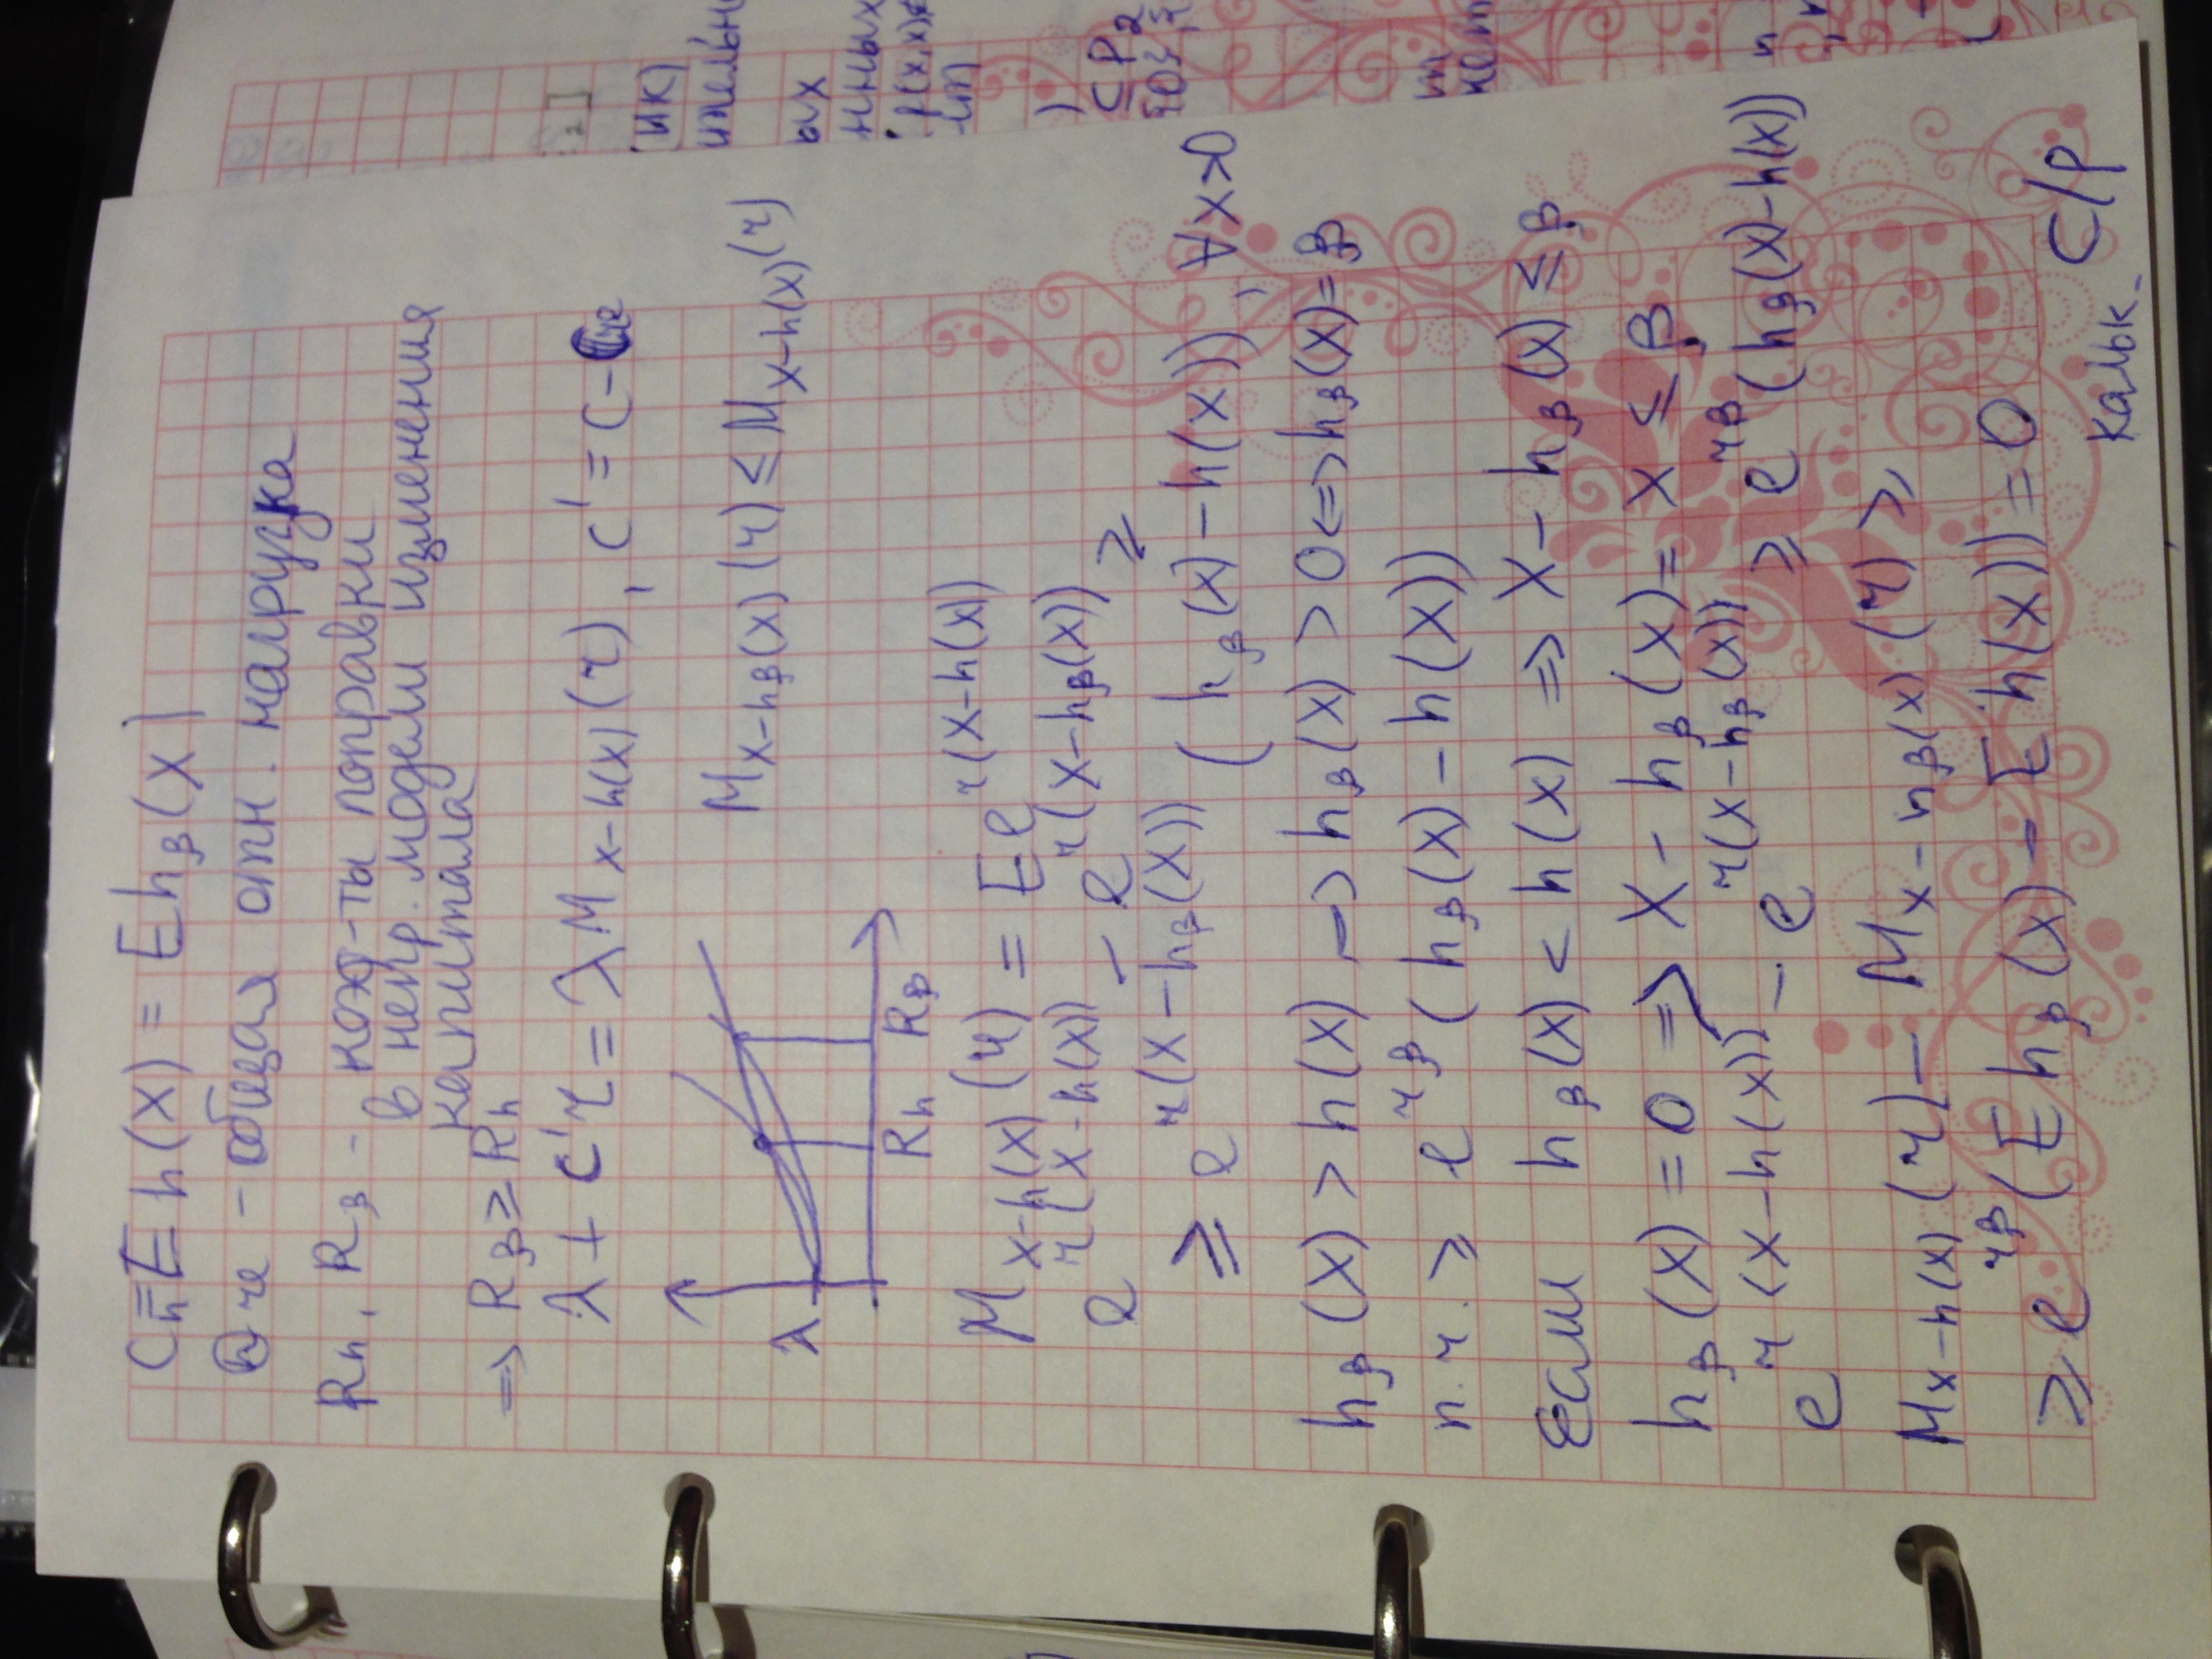 C_h = E h(x) = E h_β(x)
общая отн. нагрузка
R_h, R_β - коэф-ты поправки
в непр. модели изменения
капитала
=> R_β ≥ R_h
λ + c'r = λ M_{x-h(x)}(r), c' = c -
M_{x-h_β(x)}(r) ≤ M_{x-h(x)}(r)
λ
R_h R_β
M_{x-h(x)}(r) = E e^{r(x-h(x))}
e^{r(x-h(x))} - e^{r(x-h_β(x))} ≥
≥ e^{r(x-h_β(x))} (h_β(x) - h(x)), ∀x>0
h_β(x) > h(x) -> h_β(x) > 0 <=> h_β(x) = β
п.ч. ≥ e^{rβ} (h_β(x) - h(x))
Если h_β(x) < h(x) => x - h_β(x) ≤ β
h_β(x) = 0 => x - h_β(x) = x ≤ β
e^{r(x-h(x))} - e^{r(x-h_β(x))} ≥ e^{rβ} (h_β(x) - h(x))
M_{x-h(x)}(r) - M_{x-h_β(x)}(r) ≥
≥ e^{rβ} (E h_β(x) - E h(x)) = 0
с/р
кальк.
(ИК)
ых
нных
f(x,x)
⊆ P_2